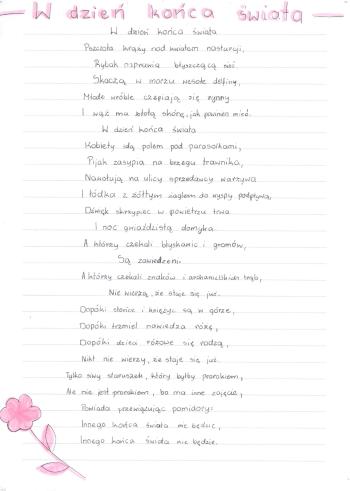 W dzień końca świata
W dzień końca świata
Pszczoła krąży nad kwiatem nasturcji,
Rybak naprawia błyszczącą sieć.
Skaczą w morzu wesołe delfiny,
Młode wróble czepiają się rynny
I wąż ma złotą skórę, jak powinien mieć.
W dzień końca świata
Kobiety idą polem pod parasolkami,
Pijak zasypia na brzegu trawnika,
Nawołują na ulicy sprzedawcy warzywa
I łódka z żółtym żaglem do wyspy podpływa,
Dźwięk skrzypiec w powietrzu trwa
I noc gwiaździstą domyka.
A którzy czekali błyskawic i gromów,
Są zawiedzeni.
A którzy czekali znaków i archanielskich trąb,
Nie wierzą, że staje się już.
Dopóki słońce i księżyc są w górze,
Dopóki trzmiel nawiedza różę,
Dopóki dzieci różowe się rodzą,
Nikt nie wierzy, że staje się już.
Tylko siwy staruszek, który byłby prorokiem,
Ale nie jest prorokiem, bo ma inne zajęcie,
Powiada przewiązując pomidory:
Innego końca świata nie będzie,
Innego końca świata nie będzie.